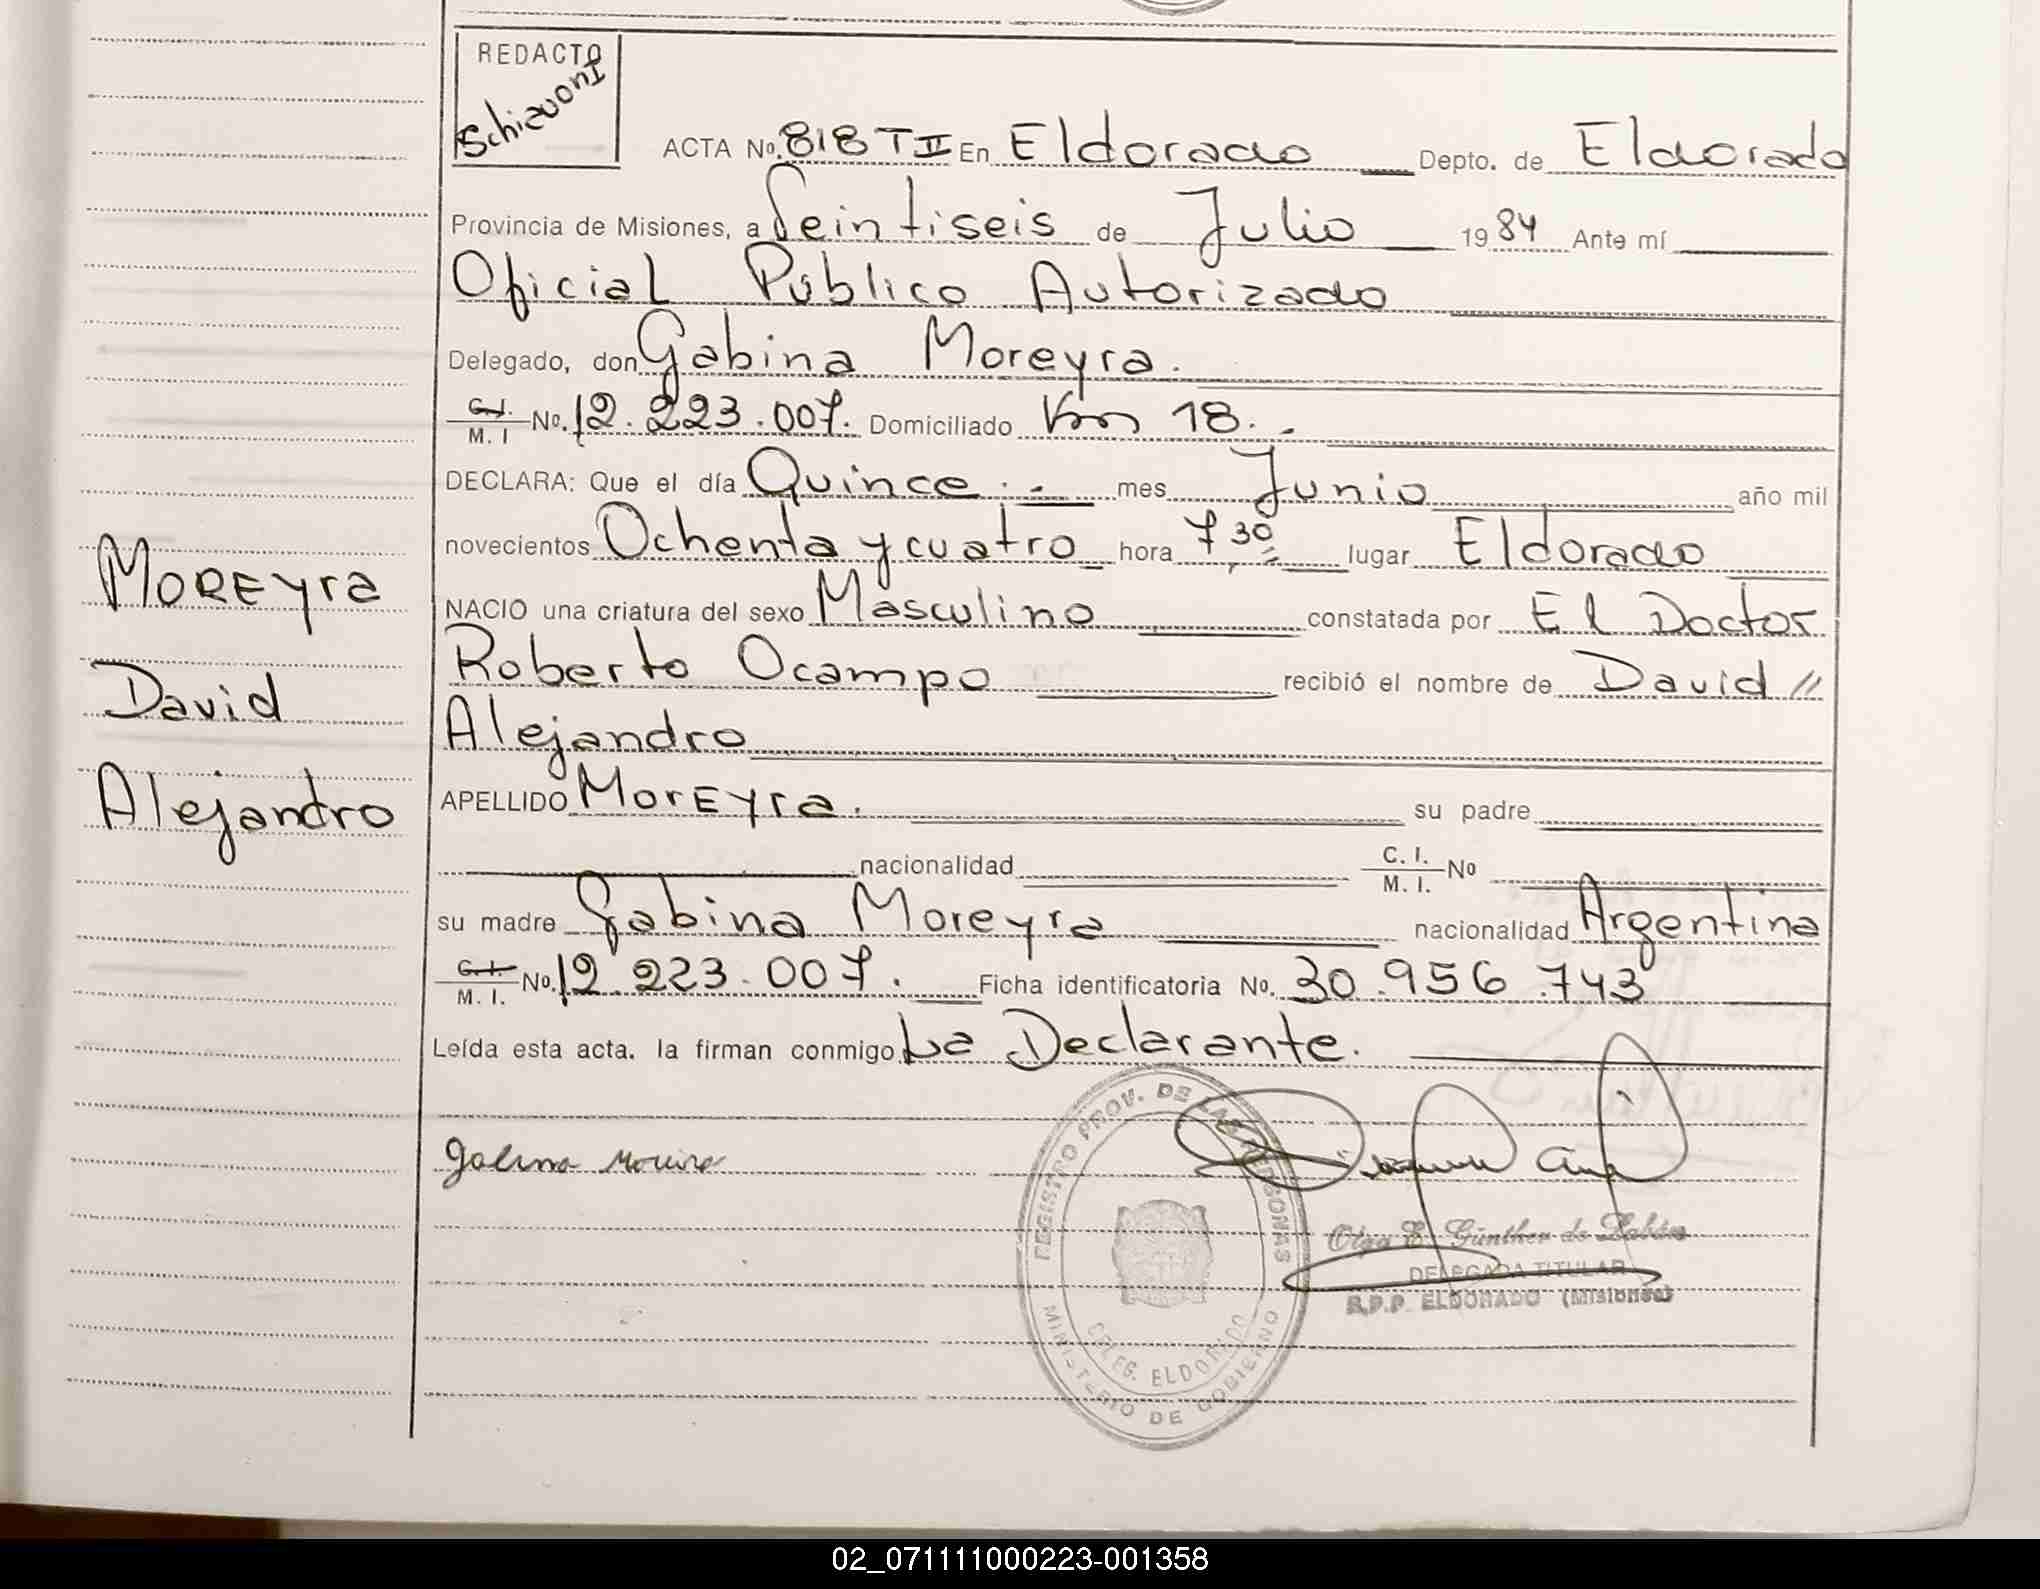 REDACTO
Schiavoni
ACTA No. 818 T II En Eldorado Depto. de Eldorado
Provincia de Misiones, a Veintiseis de Julio 1984 Ante mí
Oficial Público Autorizado
Delegado, don Gabina Moreyra.
C.I. M. I No. 12.223.007. Domiciliado Km 18. -
DECLARA: Que el día Quince. - mes Junio año mil
novecientos Ochenta y cuatro hora 7 30 lugar Eldorado
NACIO una criatura del sexo Masculino constatada por El Doctor
Roberto Ocampo recibió el nombre de David //
Alejandro
APELLIDO MorEyra. su padre
nacionalidad C. I. M. I. No
su madre Gabina Moreyra nacionalidad Argentina
C.I. M. I. No. 12.223.007. Ficha identificatoria No. 30.956.743
Leída esta acta. la firman conmigo La Declarante.
MOREyra
David
Alejandro
REGISTRO PROV. DE LAS PERSONAS
DELEG. ELDORADO
MINISTERIO DE GOBIERNO
Olga E. Günther de
DELEGADA TITULAR
R.P.P. ELDORADO (Misiones)
02_071111000223-001358